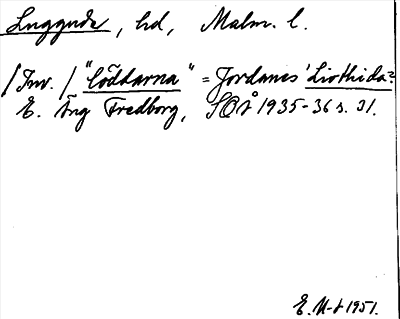 Luggude, hd, Malm. l.
/Inv./ "Löddarna" = Jordanes' Liothida?
E. Äng Fredborg, SOÅ 1935-36 s. 31.
E. U-t 1951.